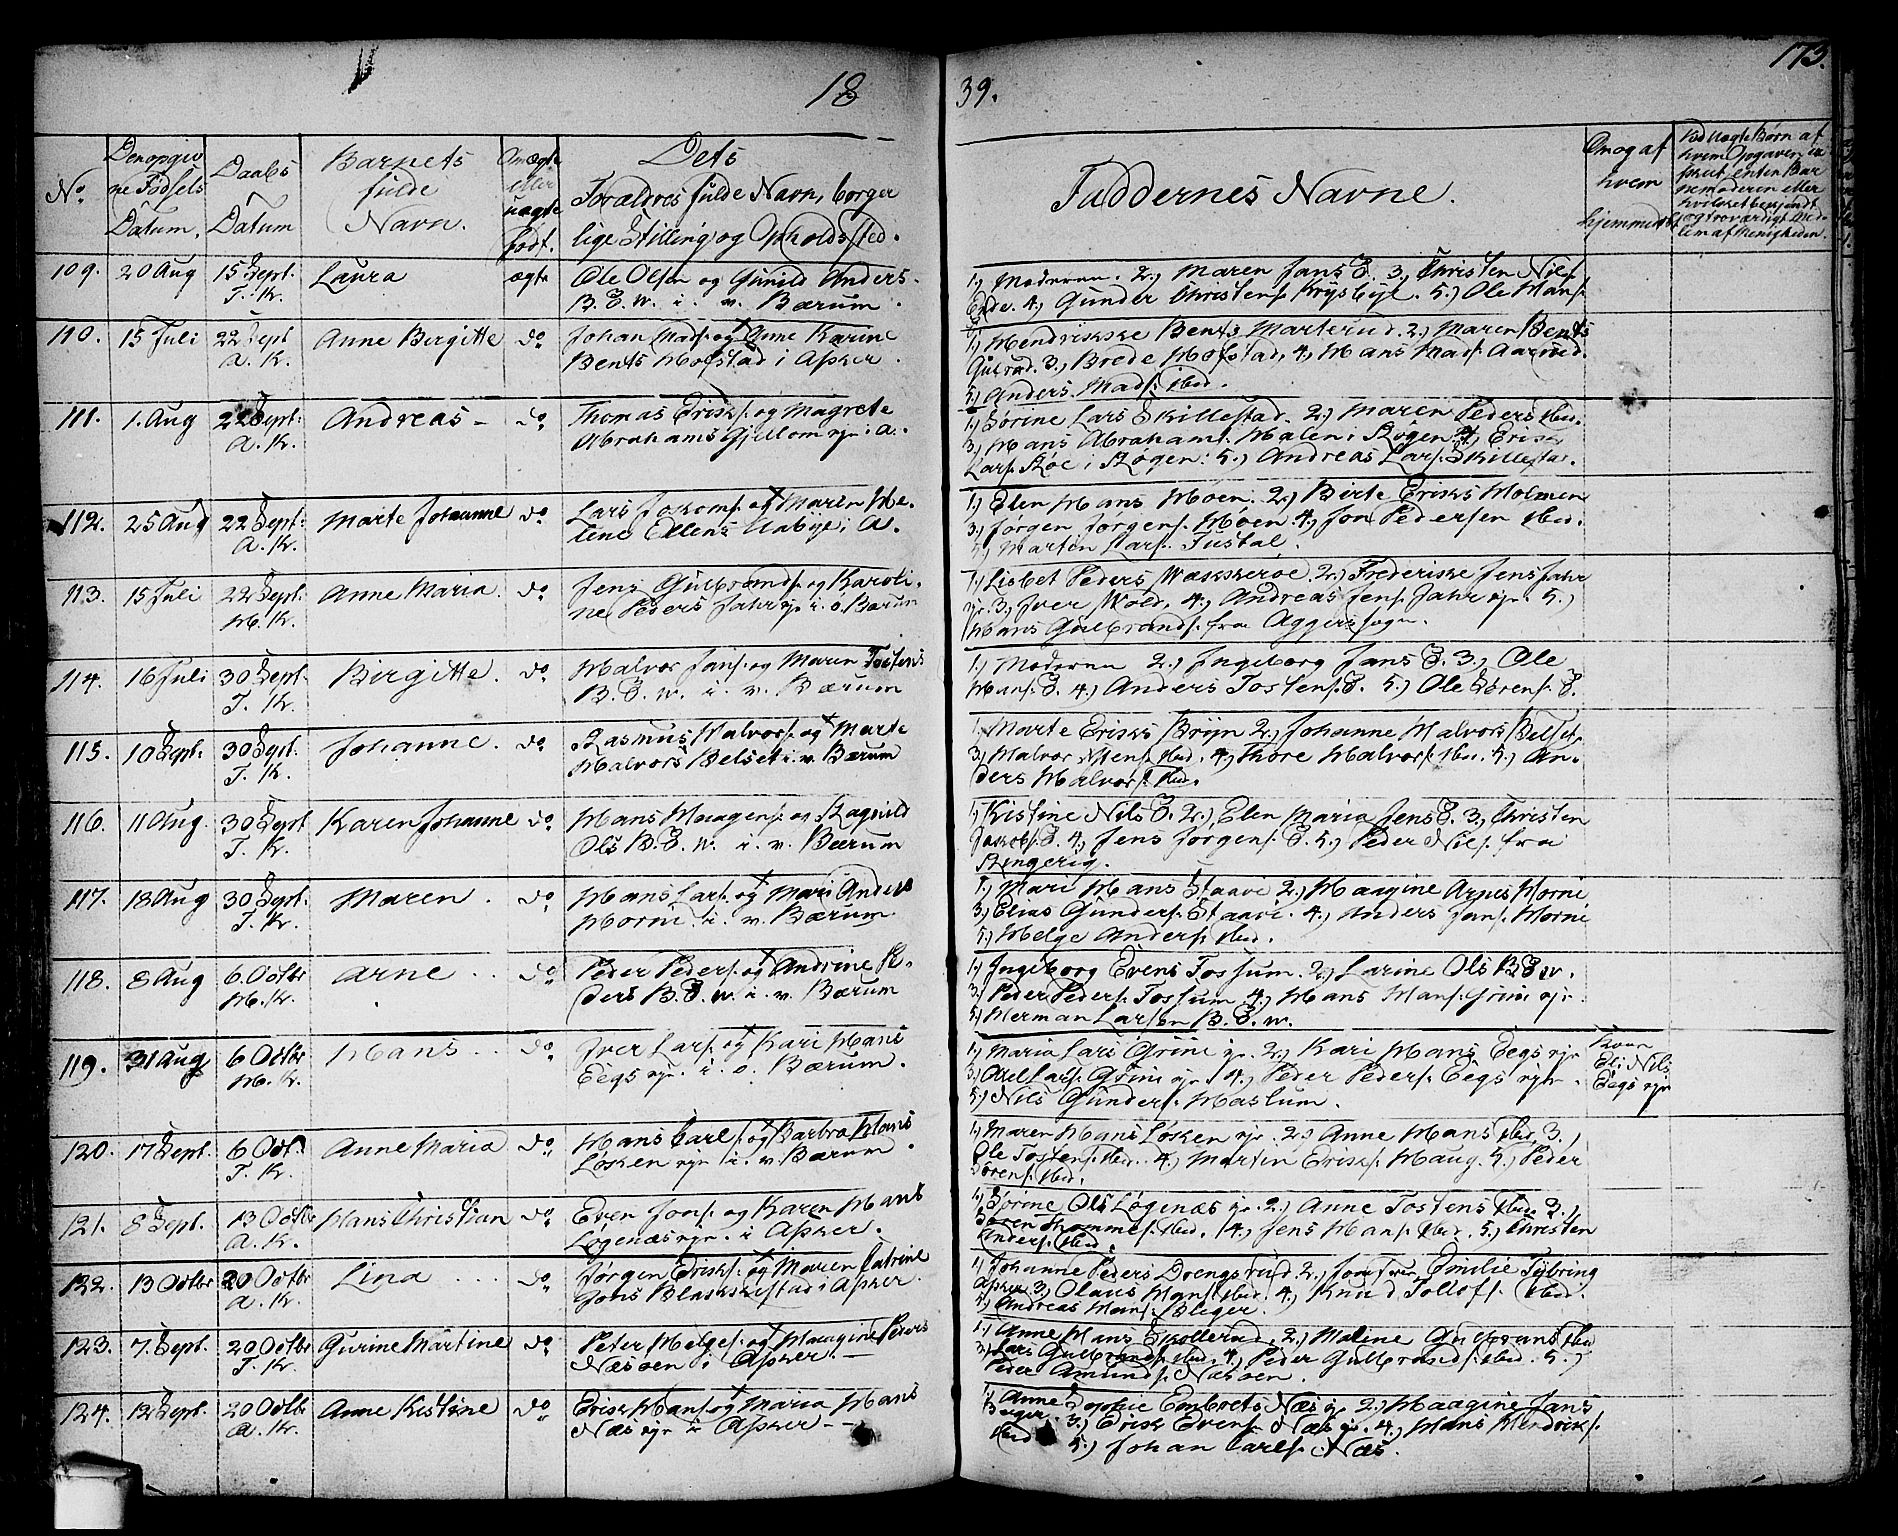 18
39.
173.
No.
Den opgiv
ne Fødsels
Datum.
Daabs
Datum
Barnets
fulde
Navn.
Om ægte
eller
uægte
født.
Dets
Forældres fulde Navn, borger
lige Stilling og Opholdssted.
Faddernes Navne.
Om og af
hvem
hjemmedøbt
109. 20 Aug 15 Sept. T. K. Laura ægte
Ole Olsen og Gunild Anders
B. E. W. i. v. Bærum.
1,) Moderen. 2,) Maren Jans E. 3, Christen Nils.
4,) Gunder Christens. Krysbye. 5,) Ole Hans.
110. 15 Juli 22 Sept. A. K. Anne Birgitte do
Johan Mads. og Anne Karine
Bents Hofstad i Asker.
1,) Hendrikke Bents Marterud. 2,) Maren Bents
Gulrud. 3,) Brede Hofstad, 4,) Hans Mads. Aarud.
5,) Anders Mads. ibid.
111. 1. Aug 22 Sept. A. K. Andreas – do
Thomas Eriks. og Magrete
Abrahams Gjellom eje i A.
1,) Sørine Lars Skillestad. 2,) Maren Peders ibid.
3,) Hans Abrahams. Halen i Røgen 4,) Erik
Lars. Røe i Røgen. 5,) Andreas Lars. Skillestad.
112. 25 Aug 22 Sept. A. K. Marte Johanne do
Lars Jakobs. og Maren He-
lene Ellens Aabye i A.
1,) Elen Hans Høen. 2,) Birte Eriks Holmen
3,) Jørgen Jørgens. Høen 4,) Jon Pedersen ibid.
5,) Marten Lars. Tustal.
113. 15 Juli 22 Sept. H. K. Anne Maria. do
Jens Gulbrands. og Karoli-
ne Peders Jahr eje i. o. Bærum
1,) Lisbet Peders Wækkerøe. 2,) Frederikke Jens Jahr
eje. 3,) Iver Wold, 4,) Andreas Jens. Jahr eje. 5,)
Hans Gulbrands. fra Aggers Sogn.
114. 16 Juli 30 Sept. T. K. Birgitte. do
Halvor Jans. og Maren Tostens
B. E. W. i. v. Bærum
1,) Moderen 2,) Ingeborg Jans E. 3,) Ole
Hans. E. 4,) Anders Tostens. E. 5,) Ole Sørens. E.
115. 10 Sept. 30 Sept. T. K. Johanne. do
Rasmus Halvors. og Marte
Halvors Belset i. v. Bærum
1, Marte Eriks Bryn 2,) Johanne Halvors Belset,
3,) Halvor Nilsen ibid. 4,) Thore Halvors. ibid. 5,) An-
ders Halvors. ibid.
116. 11 Aug. 30 Sept. T. K. Karen Johanne do
Hans Haagens. og Ragnild
Ols B. E. W. i. v. Bærum
1,) Kistine Nils E. 2,) Elen Maria Jens E. 3,) Christen
Jakobs. E. 4,) Jens Jørgens. E. 5,) Peder Nils. fra
Ringerig.
117. 18 Aug 30 Sept. T. K. Maren. do
Hans Lars. og Mari Anders
Horni i. v. Bærum.
1,) Mari Hans Staavi 2,) Haagine Arnes Horni
3,) Elias Gunders. Staavi. 4,) Anders Jans. Horni
5,) Helge Anders. ibid.
118. 8 Aug 6. Octbr H. K. Arne. do
Peder Peders. og Andrine Pe-
ders B. E. W. i. v. Bærum
1,) Ingeborg Evens Fossum. 2,) Larine Ols B E W.
3,) Peder Peders. Fossum 4,) Hans Hans. Grini eje.
5,) Herman Larsen B. E. W.
119. 31 Aug 6 Octbr H. K. Hans.. do
Iver Lars. og Kari Hans
Eegs eje. i. o. Bærum.
1,) Maria Lars Grini eje. 2,) Kari Hans Eegs eje
3,) Axel Lars. Grini eje 4,) Peder Peders. Eegs eje.
5,) Nils Gunders. Haslum.
Kone
Eli Nils
Eegs eje
120. 17 Sept. 6 Oct. T. K. Anne Maria do
Hans Carls. og Barbro Hans
Løken eje i. v. Bærum.
1,) Maren Hans Løken eje. 2,) Anne Hans ibid. 3.)
Ole Tostens. ibid. 4,) Marten Eriks. Haug. 5,) Peder
Sørens. ibid.
121. 8 Sept. 13 Octbr A. K. Hans Christian do
Even Jons. og Karen Hans
Løgenæs eje. i Asker.
1,) Sørine Ols Løgenæs eje. 2,) Anne Tostens ibid. 3.)
Søren Thommes. ibid. 4,) Jens Hans. ibid. 5,) Christen
Anders. ibid.
122. 13 Octbr 20 Octbr A. K. Lina... do
Jørgen Eriks. og Maren Catrine
Jons Blakkestad i Asker.
1,) Johanne Peders Drengsrud. 2,) Jomfrue Emilie Tybring
Asker 3,) Olaus Hans. ibid. 4,) Knud Tollofs. ibid.
5,) Andreas Hans. Bleger.
123. 7. Sept. 20 Octbr T. K. Gurine Martine do
Peter Helges. og Haagine Peders
Næsøen i Asker. –
1,) Anne Hans Skollerud. 2,) Maline Gulbrands ibid
3,) Lars Gulbrands. ibid. 4,) Peder Gulbrands. ibid. 5.)
Peder Amunds. Næsøen.
124. 12 Sept. 20 Octbr A. K. Anne Kistine do
Erik Hans. og Maria Hans
Næs eje i Asker – –
1,) Anne Sophie Embrets Næs eje 2,) Haagine Jans
3,) Erik Evens. Næs eje. 4,) Hans Hendriks.
ibid 5,) Johan Carls. Næs.